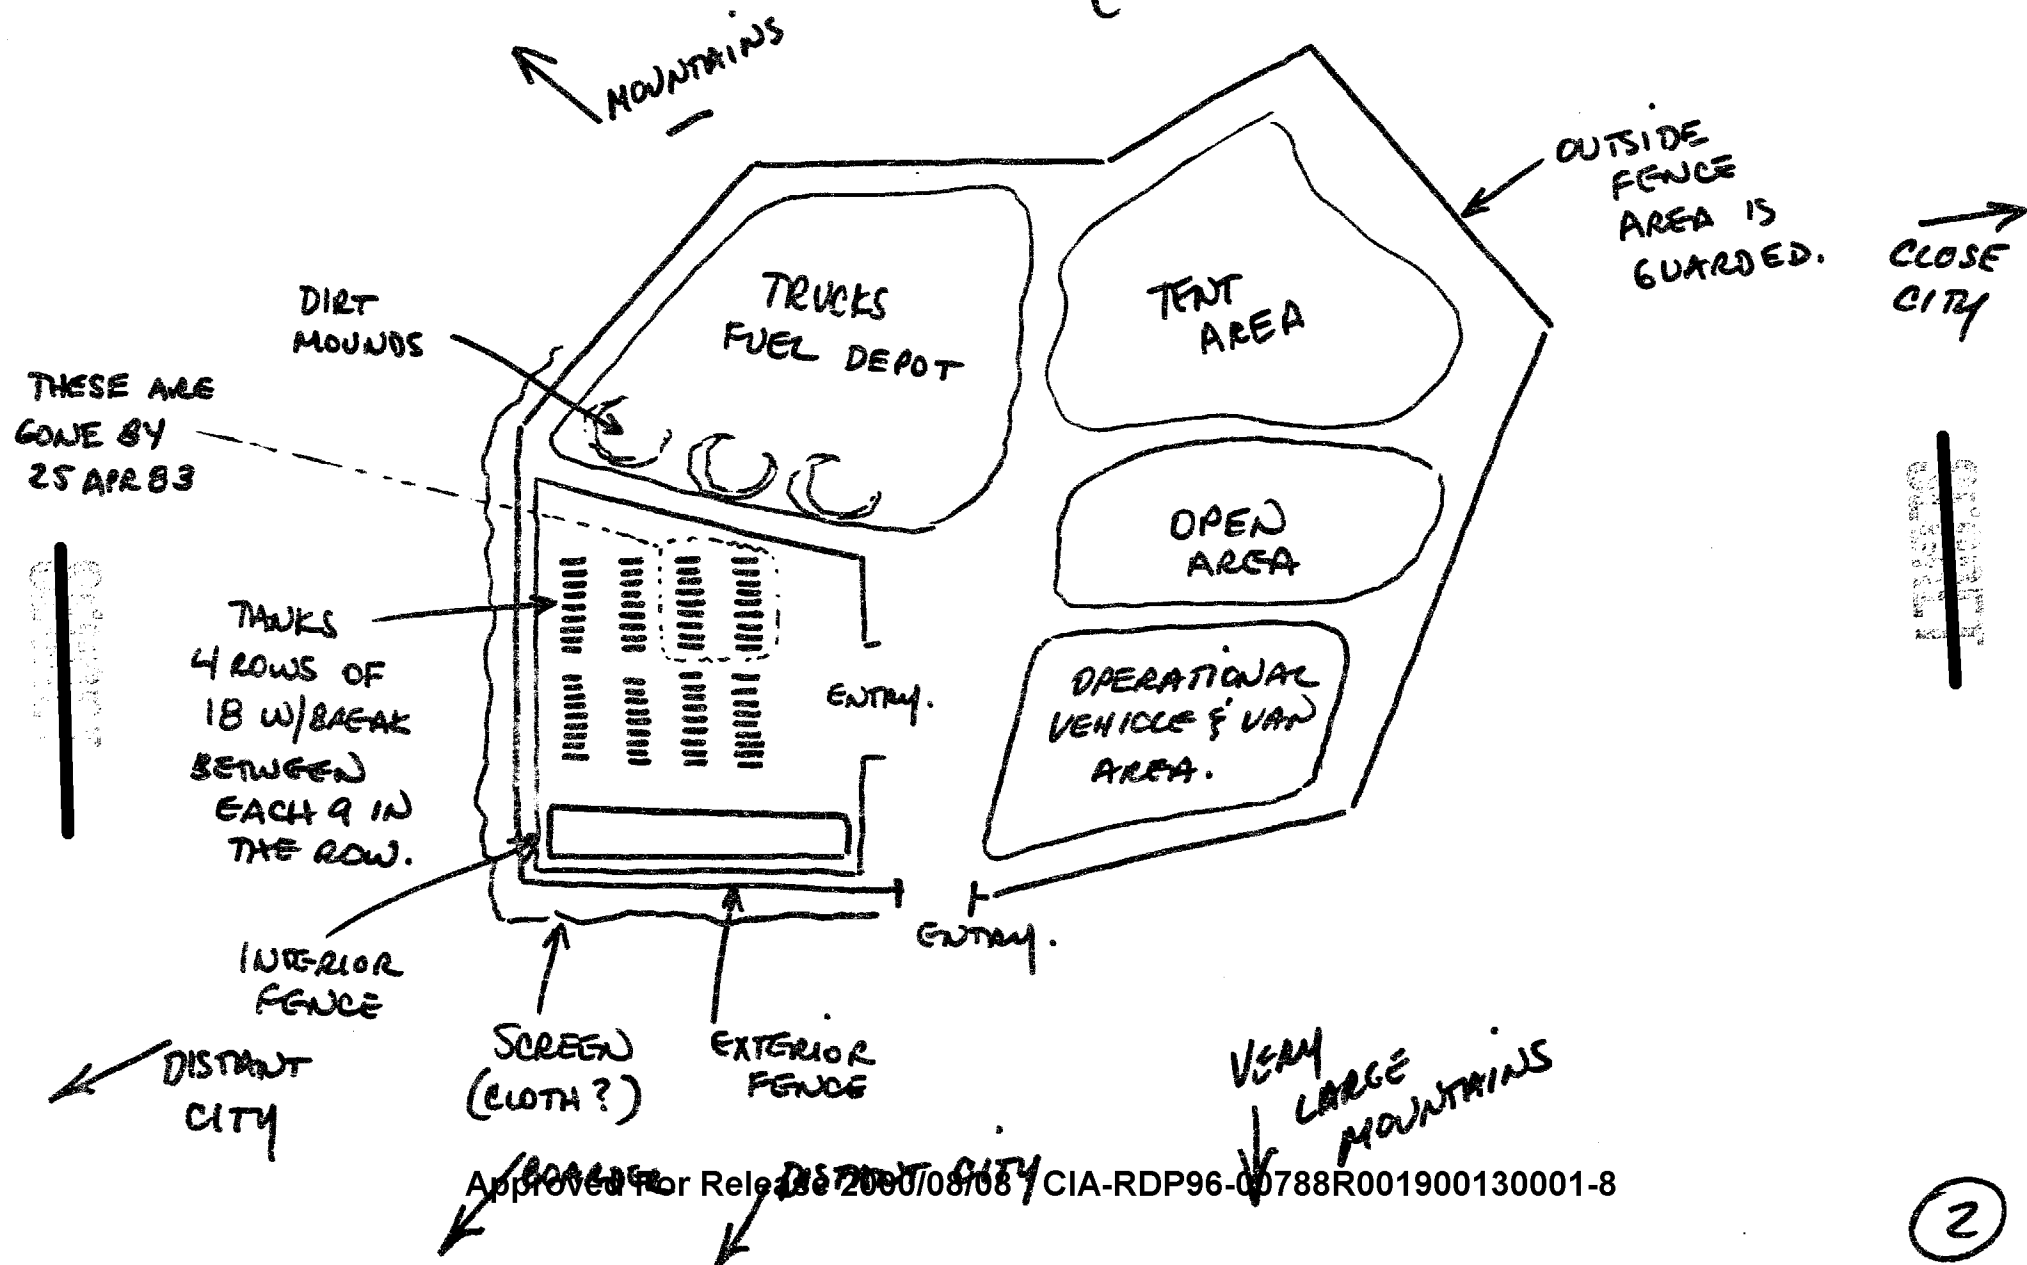 MOUNTAINS
OUTSIDE
FENCE
AREA IS
GUARDED.
CLOSE
CITY
DIRT
MOUNDS
TRUCKS
FUEL DEPOT
TENT
AREA
THESE ARE
GONE BY
25 APR 83
OPEN
AREA
TANKS
4 ROWS OF
18 W/BREAK
BETWEEN
EACH 9 IN
THE ROW.
ENTRY.
OPERATIONAL
VEHICLE & VAN
AREA.
ENTRY.
INTERIOR
FENCE
SCREEN
(CLOTH?)
EXTERIOR
FENCE
DISTANT
CITY
VERY
LARGE
MOUNTAINS
BOARDER
DISTANT CITY
Approved For Release 2000/08/08 : CIA-RDP96-00788R001900130001-8
2